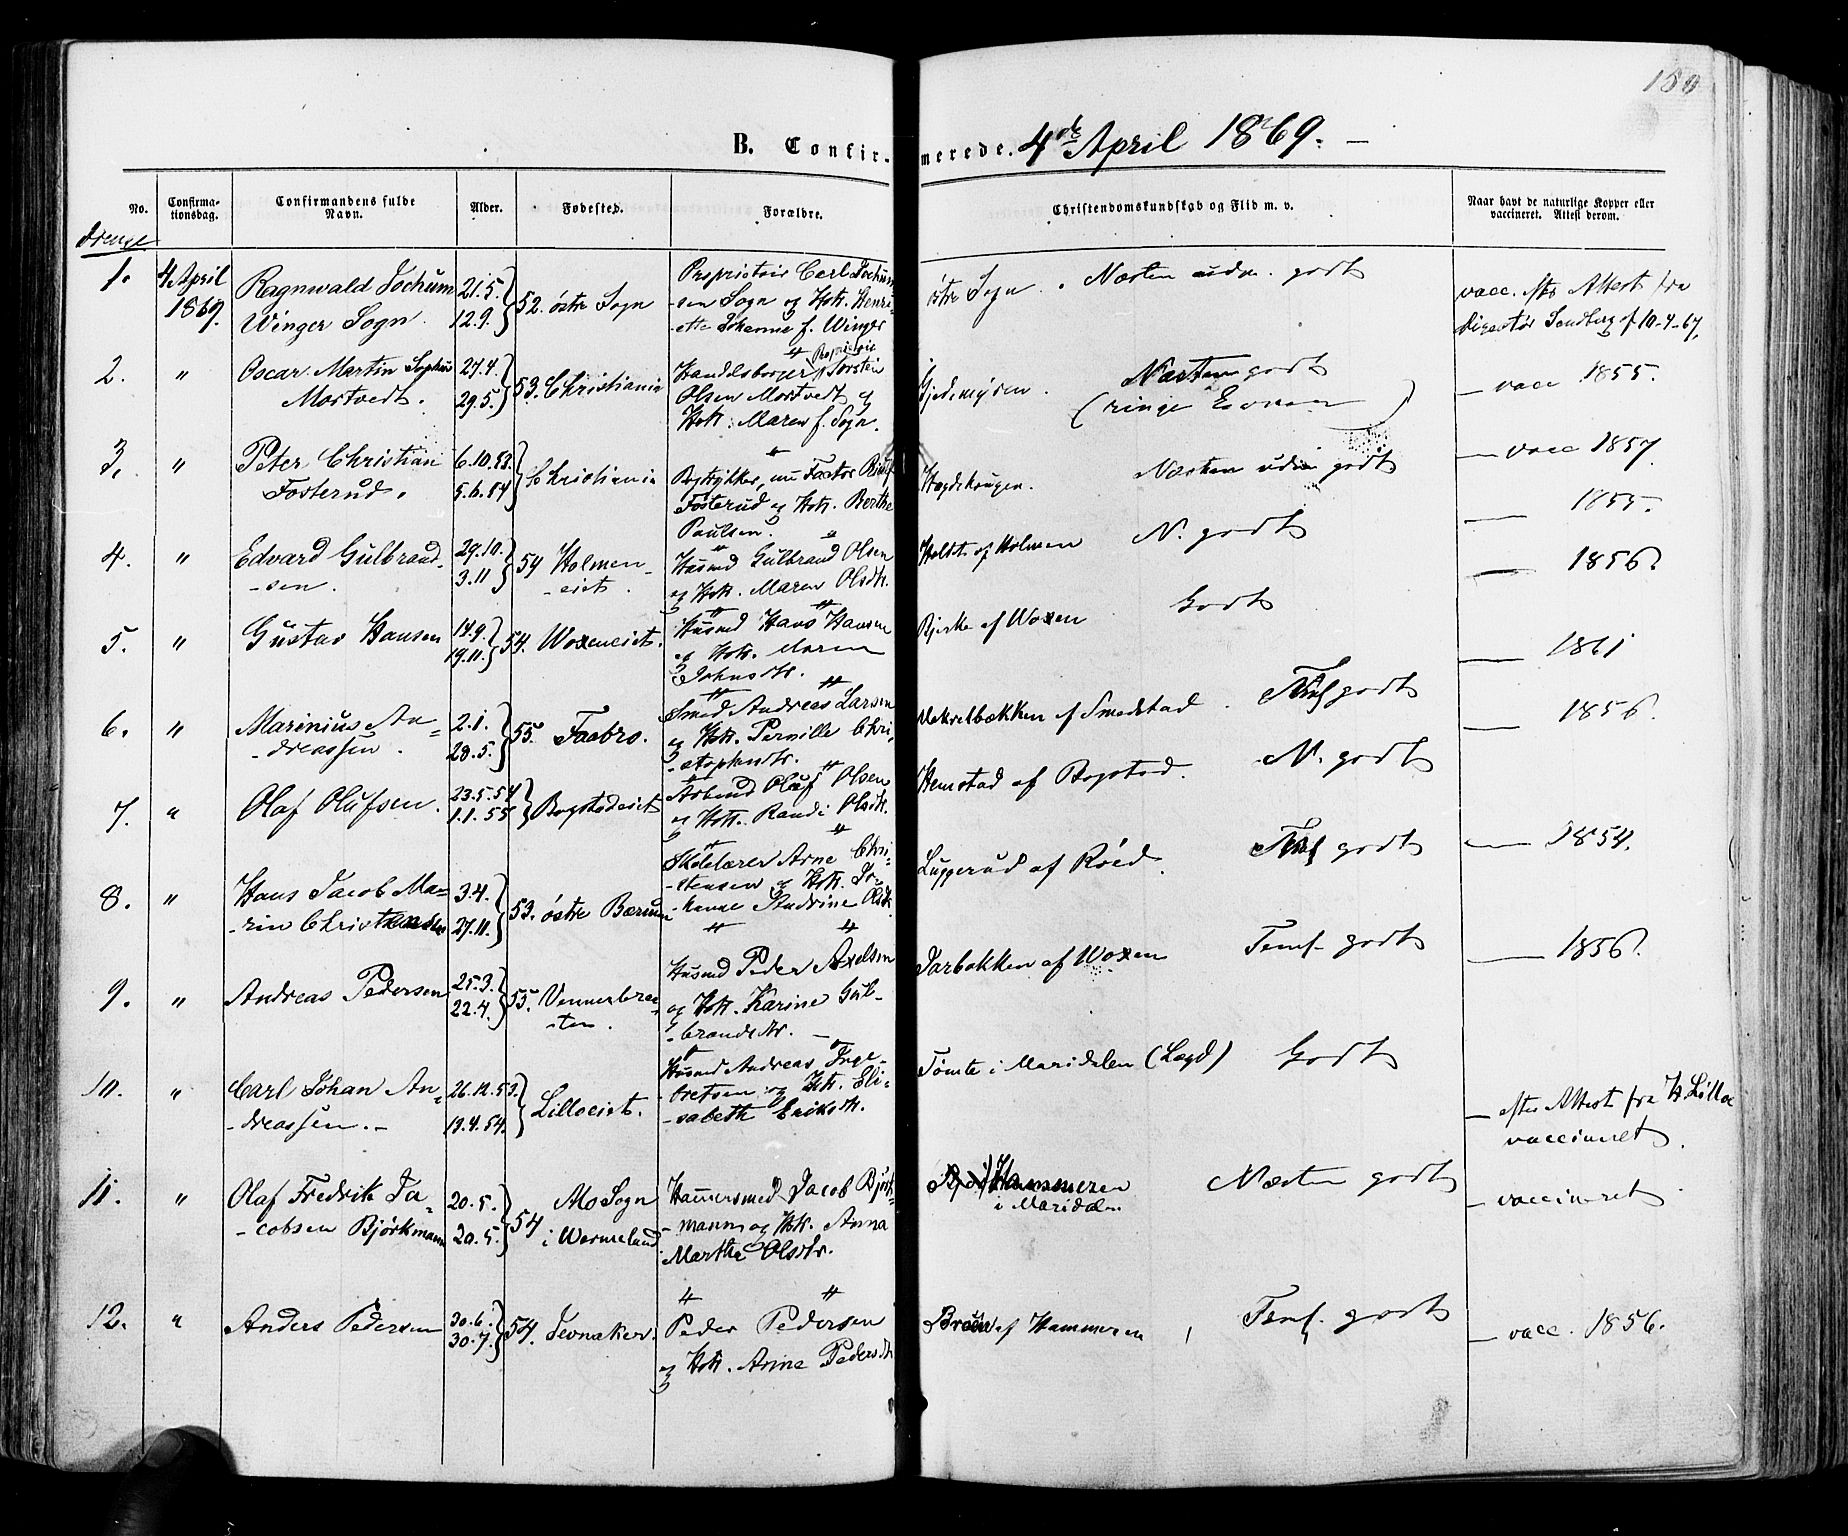 180
B. Confirmerede. 4de April 1869.
No.
Confirmationsdag.
Confirmandens fulde Navn.
Alder.
Fødested.
Forældre.
Christendomskundskab og Flid m. v.
Naar havt de naturlige Kopper eller vaccineret. Attest derom.
Drenge
1. 4 April 1869.
Ragnwald Jochum
Winger Sogn.
21.5. 12.9. 52. østre Sogn
Proprietair Carl Jochum-
-sen Sogn og Hstr. Henri-
-ette Johanne f. Winger
østre Sogn. Næsten udm. godt
vacc. efter Attest fra
Directør Sandberg af 10-4-67.
2. "
Oscar Martin Sophus
Mostvedt.
27.4. 29.5. 53. Christiania
Handelsborger, Proprietair Torsten
Olsen Mostvedt og
Hstr. Maren f. Sogn.
Gjedemyren. Næsten godt
(ringe Evner)
— vacc 1855.
3. "
Peter Christian
Fosterud.
6.10.53. 5.6.54 Christiania
Fosterud og Hstr. Berthe
Paulsen.
Hægdehaugen. Næsten udm godt
— vacc 1857.
4. "
Edvard Gulbrand-
-sen.
29.10. 3.11 54 Holmen-
-eiet.
Husmd Gulbrand Olsen
og Hstr. Maren Olsdtr.
Holdt. af Holmen N. godt
— 1855.
5. "
Gustav Hansen
14.9. 19.11. 54. Woxeneiet.
Husmd Hans Hansen
og Hstr. Maren
Johnsdtr.
Bjerke af Woxen Godt
— 1856.
6. "
Marinius An-
-dreassen.
2.1. 28.5. 55. Faabro.
Smed Andreas Larsen
og Hstr. Pernille Chri-
-stophersdtr.
Makrelbækken af Smedstad. Temf godt
— 1861
7. "
Olaf Olufsen.
23.5.54 1.1.55 Bogstadeiet
Arbmd Oluf Olsen
og Hstr. Randi Olsdtr.
Hemstad af Bogstad. N. godt
— 1856.
8. "
Hans Jacob Ma-
-rin Christensen
3.4. 27.11. 53. østre Bærum
Skolelærer Arne Chri-
-stensen og Hstr. Jo-
-hanne Andrine Olsdtr.
Luggerud af Røed. Temf godt
— 1854.
9. "
Andreas Pedersen
25.3. 22.4. 55. Vennerbræ-
-ten.
Husmd Peder Axelsen
og Hstr. Karine Gul-
-brandsdtr.
Tarbakken af Woxen Temf. godt
— 1856.
10. "
Carl Johan An-
-dreassen.
26.12.53. 19.4.54. Lilloeiet.
Husmd Andreas Inge-
-bretsen og Hstr. Eli-
-sabeth Eriksdtr.
Tømte i Maridalen (Lægd) Godt
— efter Attest fra H Lilloe
vaccineret.
11. "
Olaf Fredrik Ja-
-cobsen Bjørkmann
20.5. 20.5. 54 Mo Sogn
i Wermeland
Hammersmed Jacob Bjørk-
-mann og Hstr. Anna
Martha Olsdtr.
Hammeren
i Maridalen
Næsten godt
— vaccineret
12. "
Anders Pedersen
30.6. 30.7. 54. Jevnaker.
Peder Pedersen
og Hstr. Anne Pedersdtr
af Hammeren Temf. godt
— vacc. 1856.